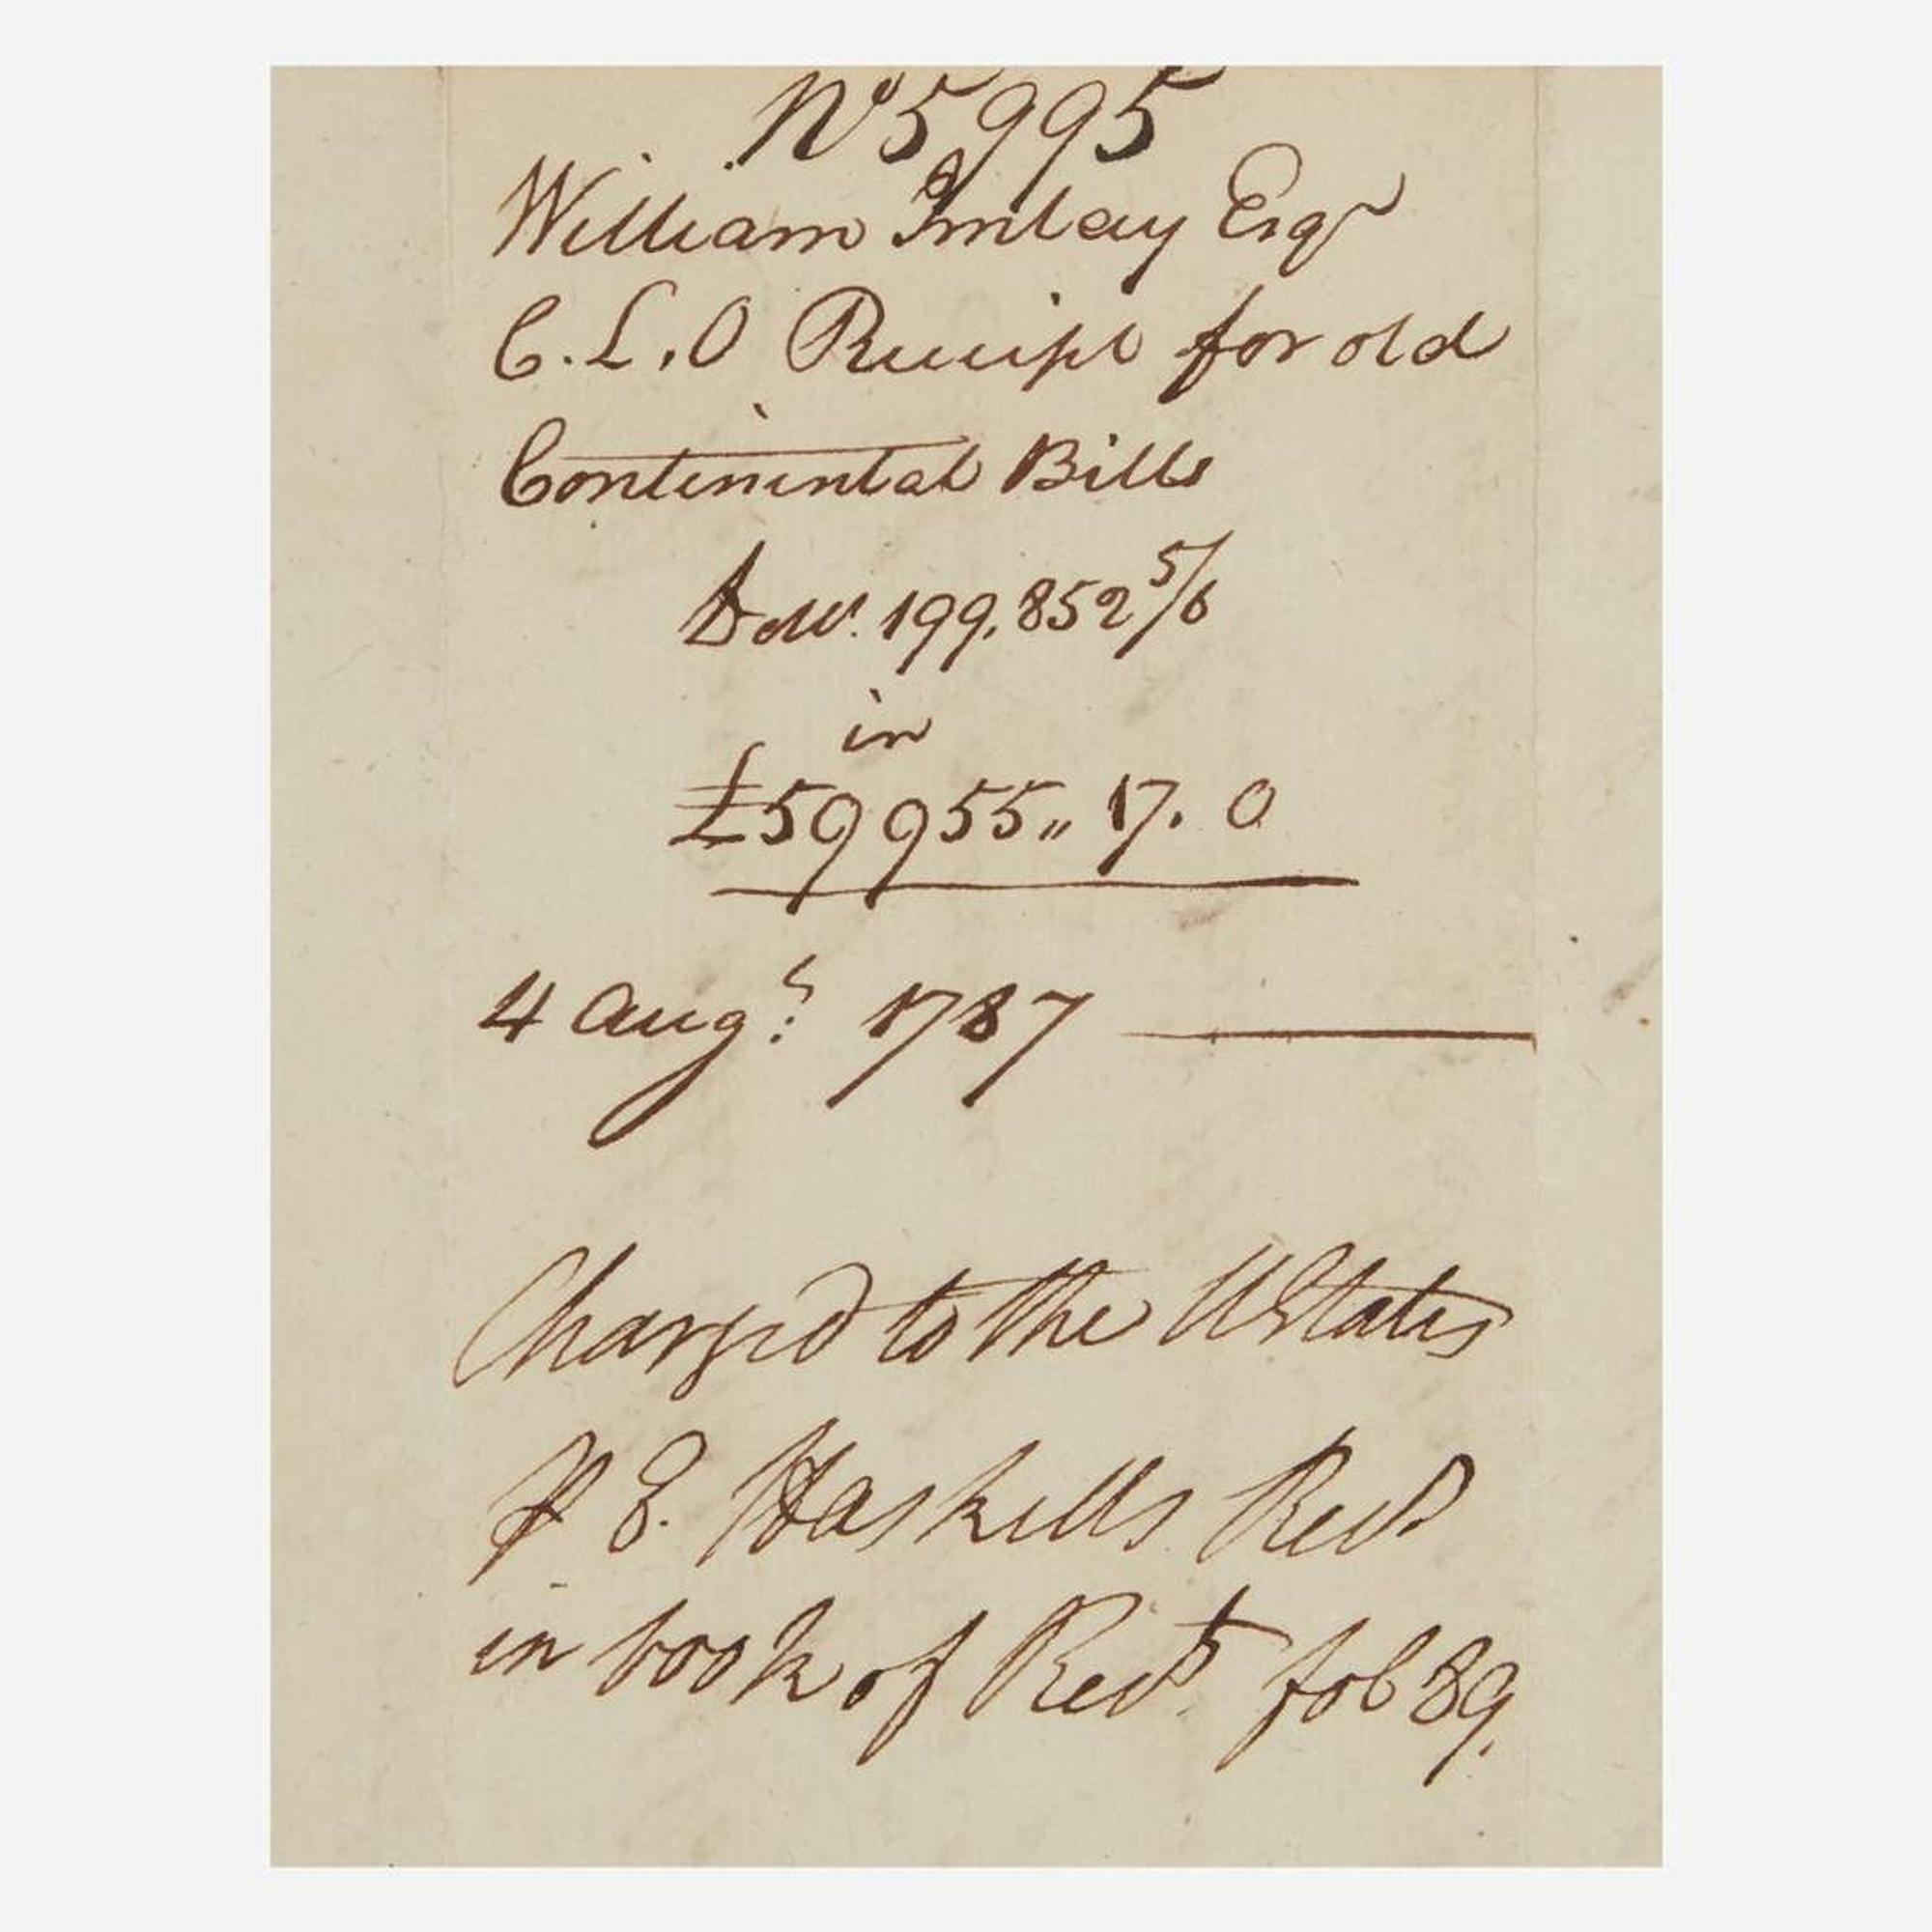 No 5995
William Imlay Esqr
C. L. O Receipt for old
Continental Bills
Dollrs. 199,852 5/6
in
£59955,, 17. 0
4 Augt. 1787
Charged to the UStates
P E. Haskells Recd
in book of Recd fol 89.